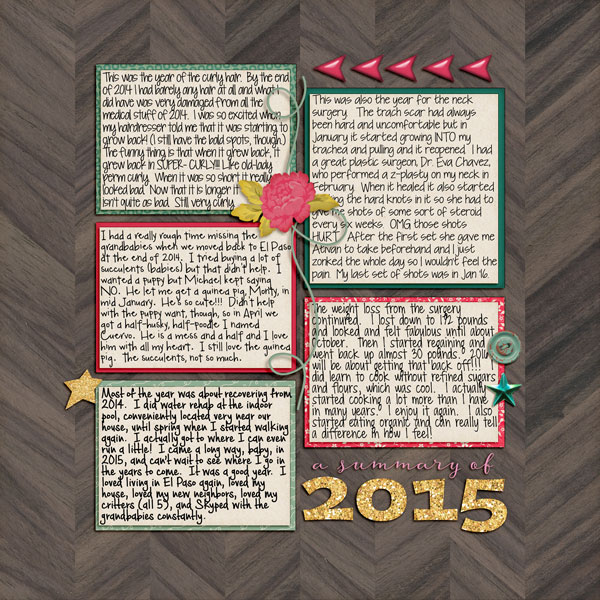 This was the year of the curly hair. By the end
of 2014 I had barely any hair at all and what I
did have was very damaged from all the
medical stuff of 2014. I was so excited when
my hairdresser told me that it was starting to
grow back! (I still have the bald spots, though.)
The funny thing is that when it grew back, it
grew back in SUPER- CURLY!!!! Like old-lady
perm curly. When it was so short it really
looked bad. Now that it is longer it
isn't quite as bad. Still very curly.
I had a really rough time missing the
grandbabies when we moved back to El Paso
at the end of 2014. I tried buying a lot of
succulents (babies) but that didn't help. I
wanted a puppy but Michael kept saying
NO. He let me get a guinea pig, Monty, in
mid January. He's so cute!!! Didn't help
with the puppy want, though, so in April we
got a half-husky, half-poodle I named
Cuervo. He is a mess and a half and I love
him with all my heart. I still love the guinea
pig. The succulents, not so much.
Most of the year was about recovering from
2014. I did water rehab at the indoor
pool, conveniently located very near our
house, until spring when I started walking
again. I actually got to where I can even
run a little! I came a long way, baby, in
2015, and can't wait to see where I go in
the years to come. It was a good year. I
loved living in El Paso again, loved my
house, loved my new neighbors, loved my
critters (all 5!), and Skyped with the
grandbabies constantly.
This was also the year for the neck
surgery. The trach scar had always
been hard and uncomfortable but in
january it started growing INTO my
trachea and pulling and it reopened. I had
a great plastic surgeon, Dr. Eva Chavez,
who performed a z-plasty on my neck in
February. When it healed it also started
the hard knots in it so she had to
give me shots of some sort of steroid
every six weeks. OMG those shots
HURT. After the first set she gave me
Ativan to take beforehand and I just
zonked the whole day so I wouldn't feel the
pain. My last set of shots was in Jan 16.
The weight loss from the surgery
continued. I lost down to 192 pounds
and looked and felt fabulous until about
October. Then I started regaining and
went back up almost 30 pounds. 2016
will be about getting that back off!!! I
did learn to cook without refined sugars
and flours, which was cool. I actually
started cooking a lot more than I have
in many years. I enjoy it again. I also
started eating organic and can really tell
a difference in how I feel!
a summary of
2015